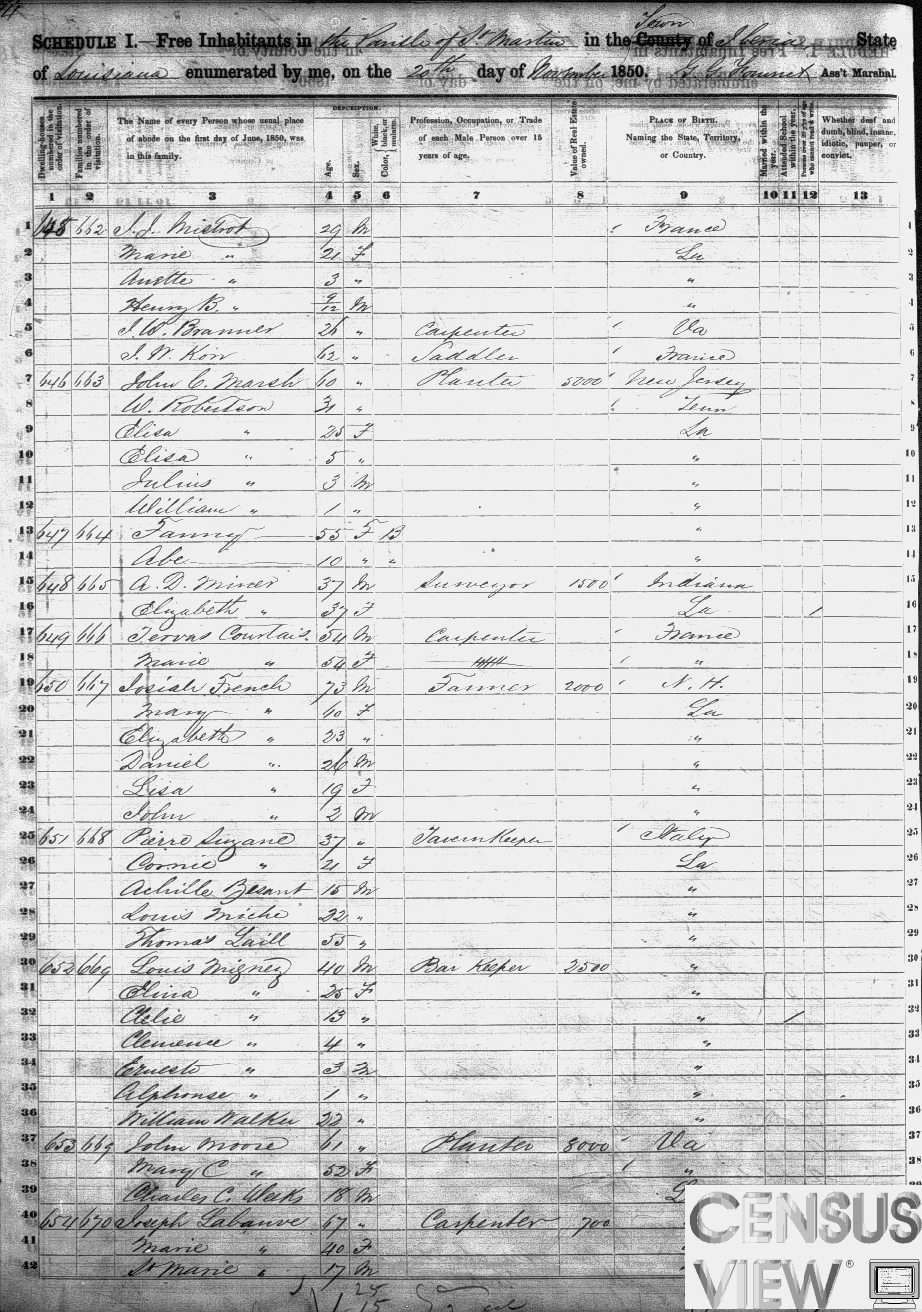 SCHEDULE I.—Free Inhabitants in the Parish of St Martin in the County Town of Iberia State
of Louisiana enumerated by me, on the 20th day of November 1850. Ass't Marshal.
Dwelling-houses numbered in the order of visitation.
Families numbered in the order of visitation.
The Name of every Person whose usual place of abode on the first day of June, 1850, was in this family.
DESCRIPTION.
Age.
Sex.
Color, White, black, or mulatto.
Profession, Occupation, or Trade of each Male Person over 15 years of age.
Value of Real Estate owned.
PLACE OF BIRTH. Naming the State, Territory, or Country.
Married within the year.
Attended School within the year.
Whether deaf and dumb, blind, insane, idiotic, pauper, or convict.
1 2 3 4 5 6 7 8 9 10 11 12 13
1 662 J. J. Mistrot 29 M France 1
2 Marie " 21 F La 2
3 Anette " 3 " " 3
4 Henry B. " 9/12 M " 4
5 J. W. Branner 26 " Carpenter Va 5
6 62 " Saddler France 6
7 646 663 John C. Marsh 60 " Planter 5000 New Jersey 7
8 W. Robertson 31 " Tenn 8
9 Elisa " 25 F La 9
10 Elisa " 5 " " 10
11 Julius " 3 M " 11
12 William " 1 " " 12
13 647 664 Fanny 55 F B " 13
14 Abe 10 " " " 14
15 648 665 A. D. Miner 37 M Surveyor 1500 Indiana 15
16 Elizabeth " 37 F La / 16
17 649 666 Courtais 54 M Carpenter France 17
18 Marie " 54 F " 18
19 650 667 Josiah French 73 M Farmer 2000 N. H. 19
20 Mary " 40 F La 20
21 Elizabeth " 23 " " 21
22 Daniel " 26 M " 22
23 Lisa " 19 F " 23
24 John " 2 M " 24
25 651 668 Pierre Suzane 37 " Tavern Keeper Italy 25
26 Cornie " 21 F La 26
27 Achille 15 M " 27
28 Louis Miche 22 " " 28
29 Thomas Laill 55 " " 29
30 652 669 Louis Migney 40 M Bar Keeper 2500 " 30
31 Elina " 25 F " 31
32 Clelie " 13 " " / 32
33 Clemence " 4 " " 33
34 Ernest " 3 M " 34
35 Alphonse " 1 " " 35
36 William Walker 22 " " 36
37 653 669 John Moore 61 " Planter 8000 Va 37
38 Mary C " 52 F " 38
39 Charles C. Weeks 18 M 39
40 654 670 Joseph Labauve 67 " Carpenter 700
41 Marie " 40 F
42 St Marie " 17 M
CENSUS
VIEW®